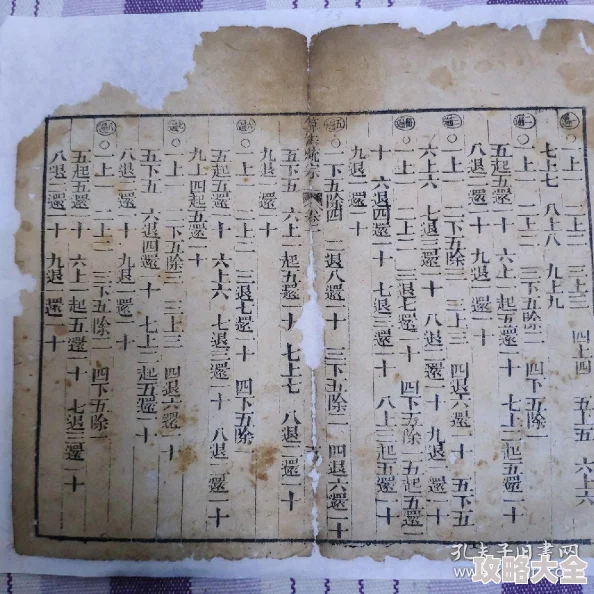 ○一上一 二上二 三上三 四上四 五上五 六上六
七上七 八上八 九上九
○一上一 二上二 三下五除二 四下五除一
五起五還一十 六上一起五還一十 七上二起五還一十
八退二還一十 九退一還一十
○一上一 二下五除三 三上三 四退六還一十 五下五
六上六 七退三還一十 八退二還一十 九退一還一十
○一上一 二上二 三退七還一十 四下五除一 五起五還一
十 六退四還一十 七退三還一十 八上三起五還一十
九退一還一十
○一下五除四 二退八還一十 三下五除二 四退六還一十
算法統宗 卷
五下五 六上一起五還一十 七上七 八退二還一十
九退一還一十
○一上一 二上二 三退七還一十 四下五除一
五起五還一十 六上六 七退三還一十 八退二還一十
九上四起五還一十
○一上一 二下五除三 三上三 四退六還一十
五下五 六退四還一十 七上二起五還一十
八退二還一十 九退一還一十
○一上一 二上二 三下五除二 四下五除一
五起五還一十 六上一起五還一十 七退三還一十
八退二還一十 九退一還一十
孔夫子旧書网
攻略大全